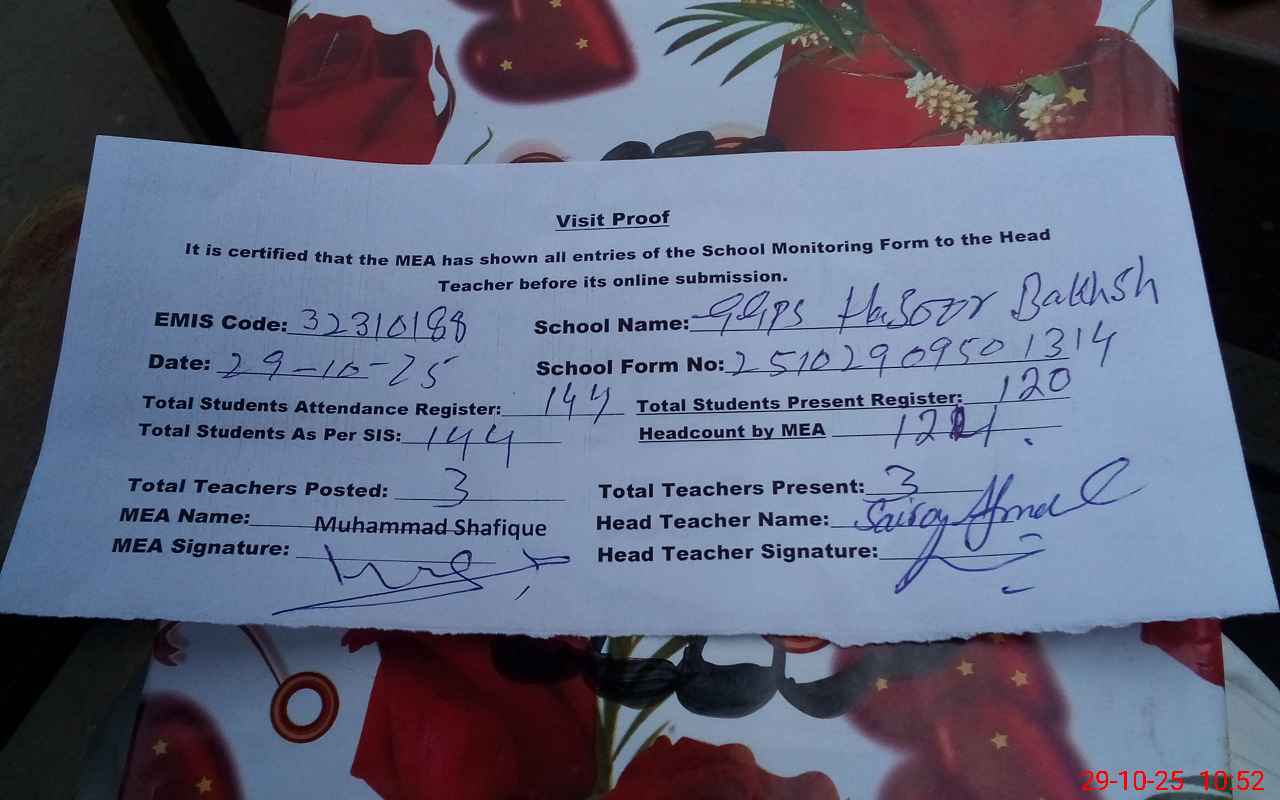 Visit Proof
It is certified that the MEA has shown all entries of the School Monitoring Form to the Head
Teacher before its online submission.
EMIS Code: 32310188 School Name: GGPS Huzoor Bakhsh
Date: 29-10-25 School Form No: 2510290950 1314
Total Students Attendance Register: 144 Total Students Present Register: 120
Total Students As Per SIS: 144 Headcount by MEA
Total Teachers Posted: 3 Total Teachers Present: 3
MEA Name: Muhammad Shafique Head Teacher Name:
MEA Signature: Head Teacher Signature:
29-10-25 10:52